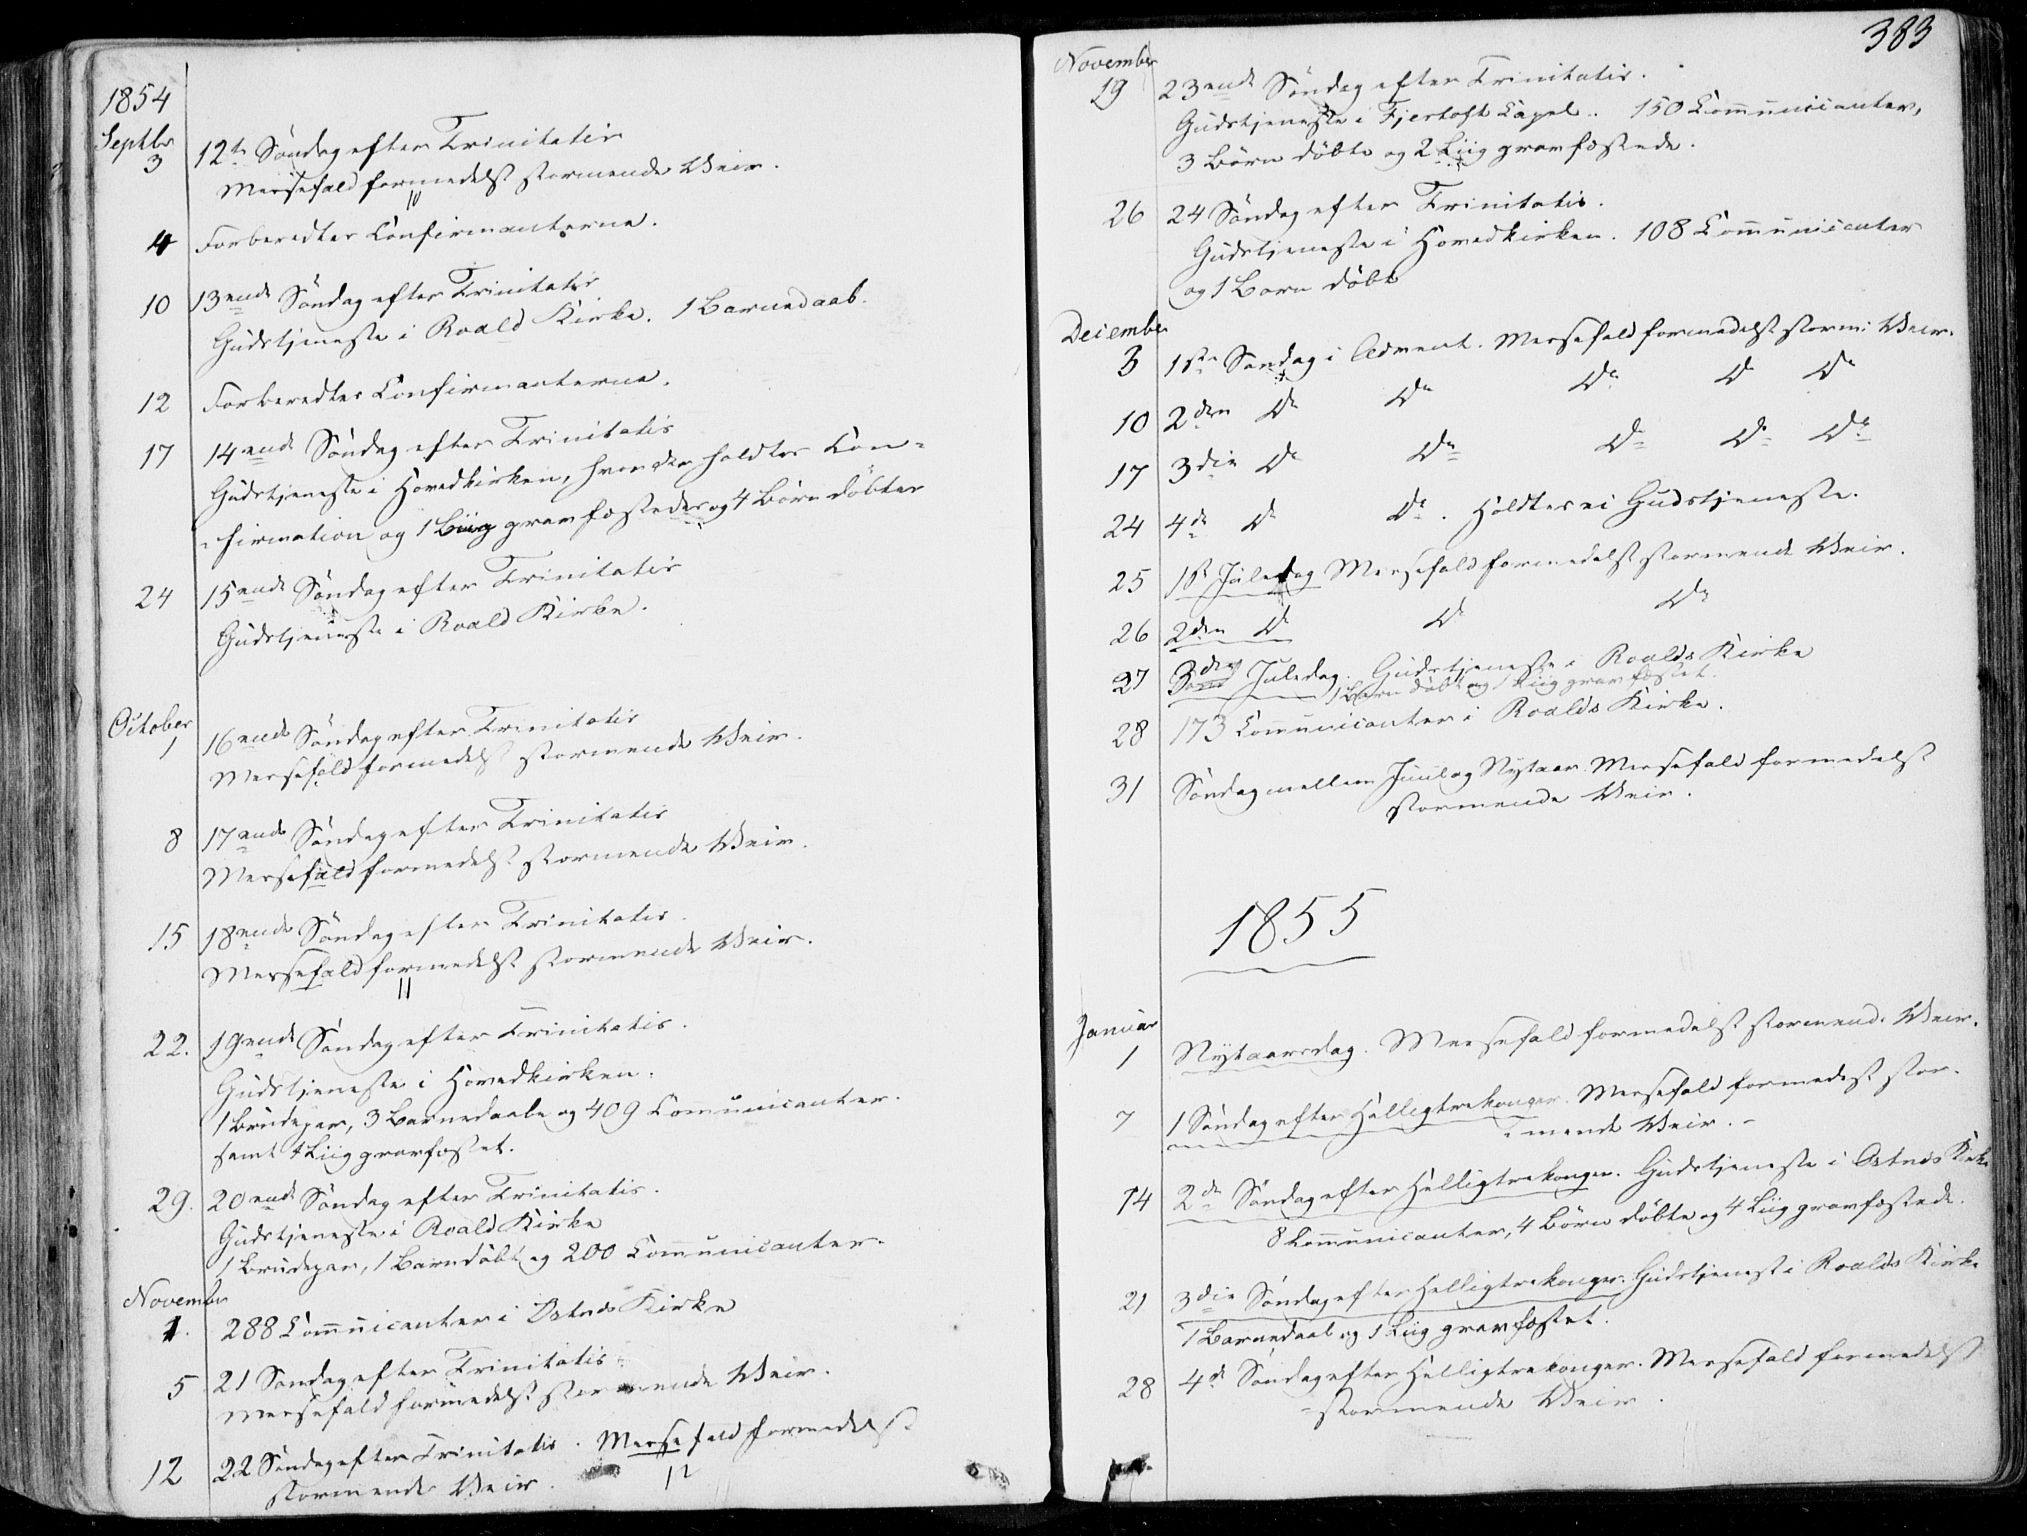 1854
Septbr
3 12te Søndag efter Trinitatis
Messefald formedelst stormende Veir.
10
4 Forberedtes Confirmanterne.
10 13ende Søndag efter Trinitatis
Gudstjeneste i Roald Kirke. 1 Barnedaab.
12 Forberedtes Confirmanterne.
17 14ende Søndag efter Trinitatis
Gudstjeneste i Hovedkirken, hvor der holdtes Con-
-firmation og 1 Liig gravfæstedes og 4 Børn døbtes
24 15ende Søndag efter Trinitatis
Gudstjeneste i Roald Kirke.
October
1 16ende Søndag efter Trinitatis
Messefald formedelst stormende Veir.
8 17ende Søndag efter Trinitatis
Messefald formedelst stormende Veir.
15 18ende Søndag efter Trinitatis.
Messefald formedelst stormende Veir.
11
22. 19ende Søndag efter Trinitatis.
Gudstjeneste i Hovedkirken.
1 Brudepar, 3 Barnedaabe og 409 Communicanter.
samt 4 Liig gravfæstet.
29. 20ende Søndag efter Trinitatis.
Gudstjeneste i Roald Kirke
1 Brudepar, 1 Barn døbt og 200 Communicanter.
November
1. 288 Communicanter i Østnes Kirke
5 21 Søndag efter Trinitatis.
Messefald formedelst stormende Veir.
12 22 Søndag efter Trinitatis. Messefald formedelst
12
stormende Veir.
383
November
19 23ende Søndag efter Trinitatis.
Gudstjeneste i Fjertoft Capel. 150 Communicanter,
3 Børn døbte og 2 Liig gravfæstede.
26 24 Søndag efter Trinitatis.
Gudstjeneste i Hovedkirken. 108 Communicanter
og 1 Barn døbt
December
3 1ste Søndag i Advent. Messefald formedelst storm: Veir.
10 2den Do Do Do Do Do
17 3die Do Do Do Do Do
24 4de Do Do. Holdtes ei Gudstjeneste.
25 1ste Juledag Messefald formedelst stormende Veir.
26 2den Do Do Do
27 3die Juledag. Gudstjeneste i Roalds Kirke
1 Barn døbt og 1 Liig gravfæstet.
28 173 Communicanter i Roalds Kirke.
31 Søndag mellem Juul og Nytaar. Messefald formedelst
stormende Veir.
1855
Januar
1 Nytaarsdag. Messefald formedelst stormend. Veir.
7 1 Søndag efter Helligtrekonger. Messefald formedest stor-
-mende Veir.-
14 2de Søndag efter Helligtrekonger. Gudstjeneste i Østnes Kirke
8 Communicanter, 4 Børn døbte og 4 Liig gravfæstede.
21 3die Søndag efter Helligtrekonger. Gudstjenest i Roalds Kirke
1 Barnedaab og 1 Liig gravfæstet.
28 4de Søndag efter Helligtrekonger. Messefald formedelst
-stormende Veir.